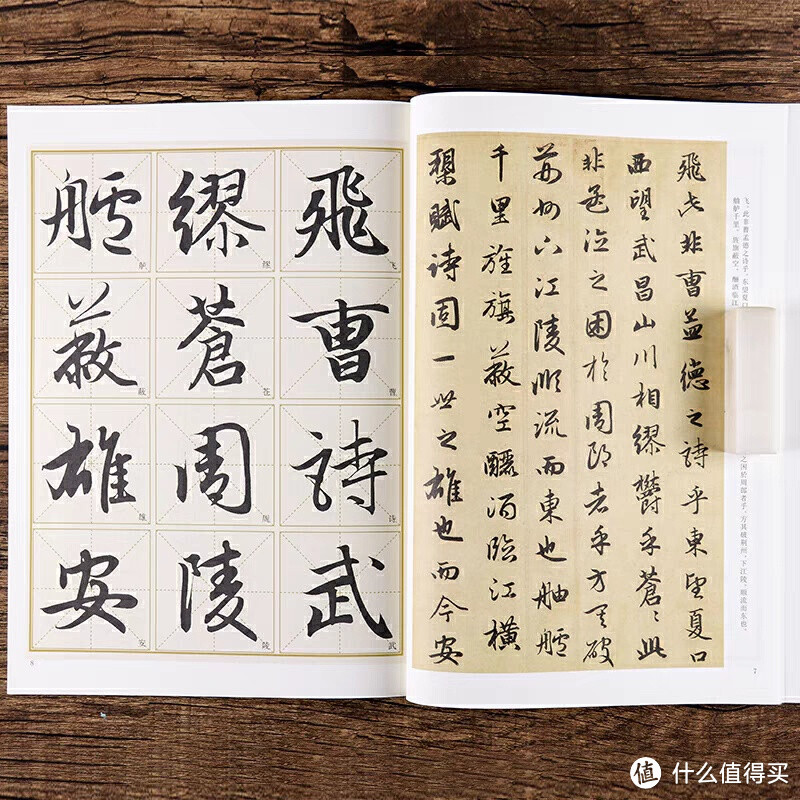 飛此非曹孟德之詩乎東望夏口
西望武昌山川相繆鬱乎蒼〻此
非孟德之困於周郎者乎方其破
荊州下江陵順流而東也舳艫
千里旌旗蔽空釃酒臨江橫
槊賦詩固一世之雄也而今安
飞、此非曹孟德之诗乎、东望夏口
之困於周郎者乎、方其破荆州、下江陵、顺流而东也、
舳舻千里、旌旗蔽空、酾酒临江
7
飛 飞
曹 曹
詩 诗
武 武
繆 缪
蒼 苍
周 周
陵 陵
艫 舻
蔽 蔽
雄 雄
安 安
8
值 什么值得买